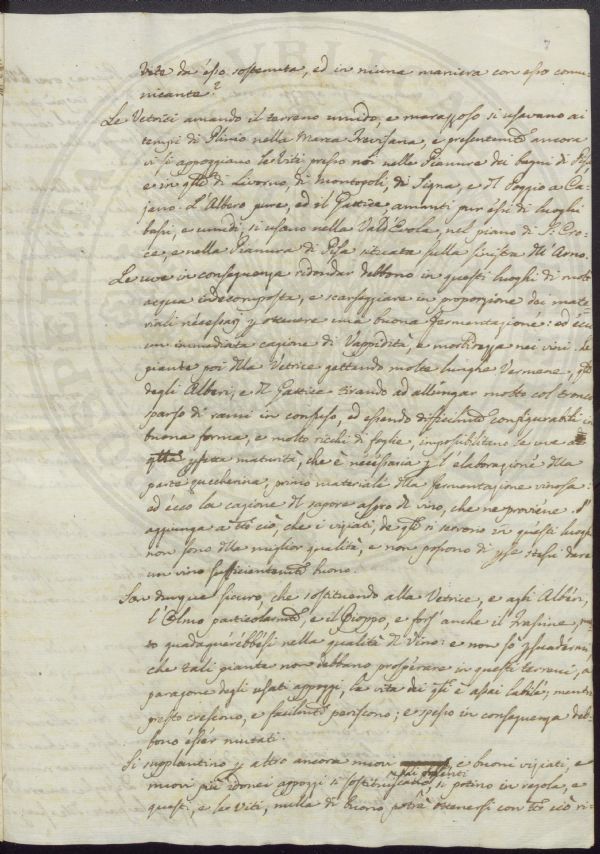 7
Vite da esso sostenuta, ed in niuna maniera con esso comu-
nicante?
Le Vetrici amando il terreno umido, e marazzoso si usavano ai
tempi di Plinio nella Marca Trevisana, e presentemte ancora
vi si appoggiano le Viti presso noi nelle Pianure dei bagni di Pisa
e in qlle di Livorno, di Montopoli, di Signa, e del Poggio a Ca-
jano. L'Albero pure, ed il Gattice, amanti pur essi di luoghi
bassi, e umidi, si usano nella Vald'Evola, nel piano di S. Cro-
ce, e nella Pianura di Pisa situata sulla sinistra dll'Arno.
Le uve in conseguenza ridondar debbono in questi luoghi di molt'
acqua indecomposta, e scarseggiare in proporzione dei mate-
riali necessarj p ottenere una buona fermentazione: ed ecco
un immediata cagione di Vappidità, e morbidezza nei vini. Le
piante poi dlla Vetrice gettando molte lunghe Vermene, qlle
degli Alberi, e dl Gattice tirando ad allungar molto col tronco
parso di rami in confuso, ed essendo difficilmte configurabili in
buona forma, e molto ricchi di foglie, impossibilitano le uve a
qlla pfetta maturità, che è necessaria p l'elaborazione dlla
parte zuccherina, primo materiale dlla fermentazione vinosa:
ed ecco la cagione dl sapore aspro dl vino, che ne proviene. S'
aggiunga a tto ciò, che i viziati, de qli si servono in questi luoghi
non sono dlla miglior qualità, e non possono di p se stessi dare
un vino sufficientemte buono.
Son dunque sicuro, che sostituendo alla Vetrice, e agli Alberi,
l'Olmo particolarmte, e il Pioppo, e fors'anche il Frassine, mol-
to guadagnerebbesi nella qualità dl Vino: e non so psuadermi,
che tali piante non debbano prosperare in questi terreni, a
paragone degli usati appoggi, la vita dei qli è assai labile, mentre
presto crescono, e facilmte periscono; e spesso in conseguenza deb-
bono esser mutati.
Si supplantino p altro ancora nuovi e buoni viziati, e
nuovi più idonei appoggi si sostituiscano ai presenti, si potino in regola, e
questi, e le Viti, nulla di buono potrà ottenersi con tto ciò ri-